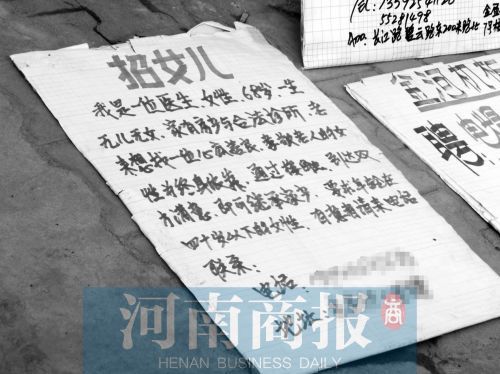 招女儿
我是一位医生，女性，68岁一生
无儿无女，家有房产与合法诊所，老
来想找一位心底善良，孝敬老人的女
性为终身依靠，通过接触，到达双
方满意，即可继承家产，要求年龄在
四十岁以下的女性，有意者请来电话
联系：
电话：
现住：
Tel: 13592541120
55281498
Add 长江路
聘
河南商报
HENAN BUSINESS DAILY